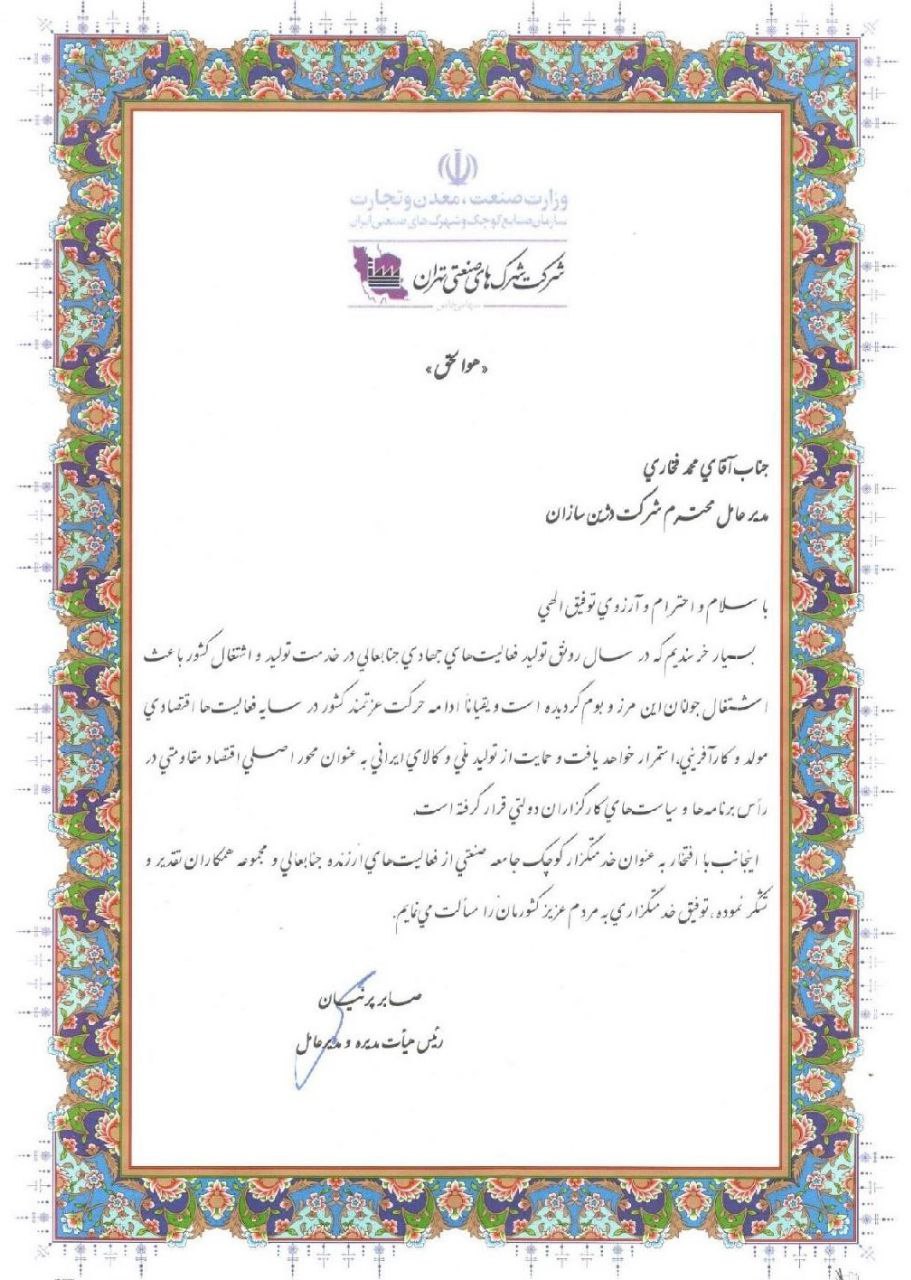 وزارت صنعت، معدن و تجارت
سازمان صنایع کوچک و شهرک های صنعتی ایران
شرکت شهرک های صنعتی تهران
سهامی خاص
«هوالحق»
جناب آقاي محمد فخاري
مدیر عامل محترم شرکت دژین سازان
با سلام و احترام و آرزوي توفیق الهي
بسیار خرسندیم که در سال رونق تولید فعالیت‌هاي جهادي جنابعالي در خدمت تولید و اشتغال کشور باعث
اشتغال جوانان این مرز و بوم گردیده است و یقیناً ادامه حرکت عزتمند کشور در سایه فعالیت‌ها اقتصادي
مولد و کارآفریني، استمرار خواهد یافت و حمایت از تولید ملي و کالاي ایراني به عنوان محور اصلي اقتصاد مقاومتي در
رأس برنامه‌ها و سیاست‌هاي کارگزاران دولتي قرار گرفته است.
اینجانب با افتخار به عنوان خدمتگزار کوچک جامعه صنعتي از فعالیت‌هاي ارزنده جنابعالي و مجموعه همکاران تقدیر و
تشکر نموده، توفیق خدمتگزاري به مردم عزیز کشورمان را مسألت مي‌نمایم.
صابر پرنیان
رئیس هیأت مدیره و مدیرعامل